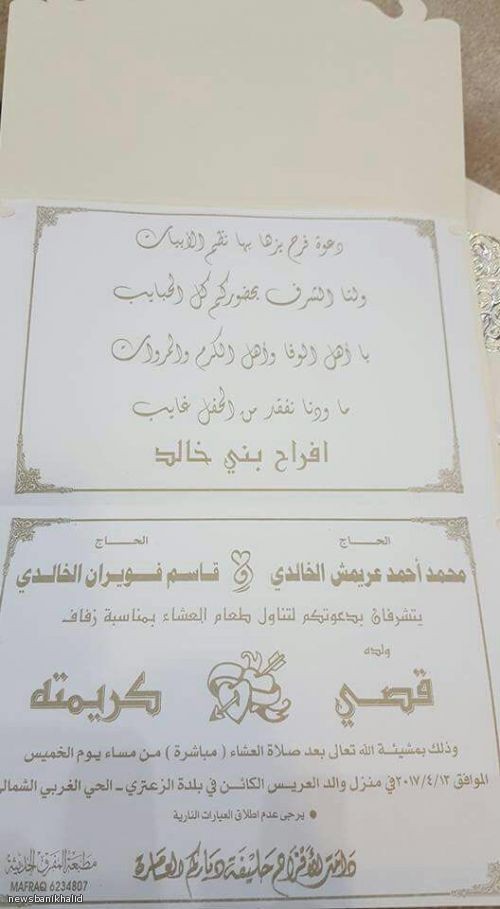 دعوة فرح يزها بها نظم الأبيات
ولنا الشرف بحضوركم كل الحبايب
يا أهل الوفا وأهل الكرم والمروات
ما ودنا نفقد من الحفل غايب
افراح بني خالد
الحاج
محمد أحمد عريمش الخالدي
الحاج
و قاسم فويران الخالدي
يتشرفان بدعوتكم لتناول طعام العشاء بمناسبة زفاف
ولده
قصي
كريمته
وذلك بمشيئة الله تعالى بعد صلاة العشاء ( مباشرة ) من مساء يوم الخميس
الموافق ٢٠١٧/٤/١٣ في منزل والد العريس الكائن في بلدة الزعتري - الحي الغربي الشمالي
• يرجى عدم اطلاق العيارات النارية
دامت الأفراح حليفة دياركم العامرة
مطبعة المفرق الحديثة
MAFRAQ 6234807
newsbanikhalid